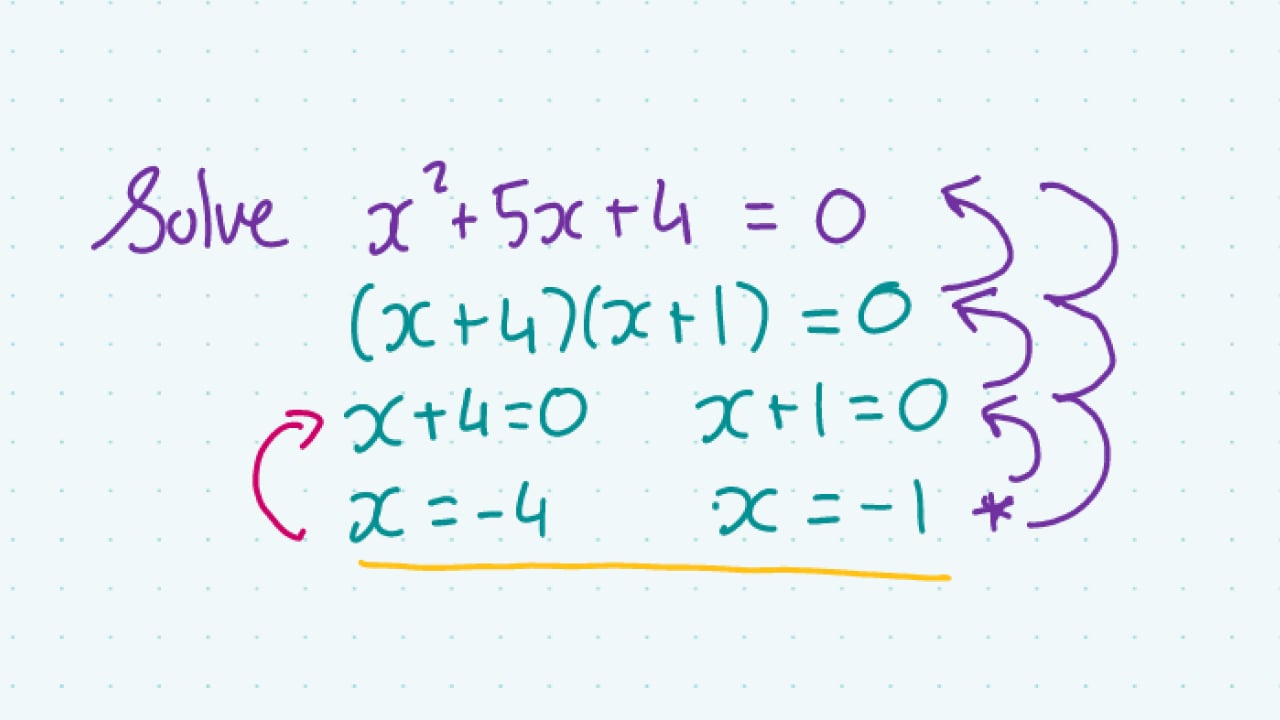 Solve x² + 5x + 4 = 0
(x + 4)(x + 1) = 0
x + 4 = 0 x + 1 = 0
x = -4 x = -1 *